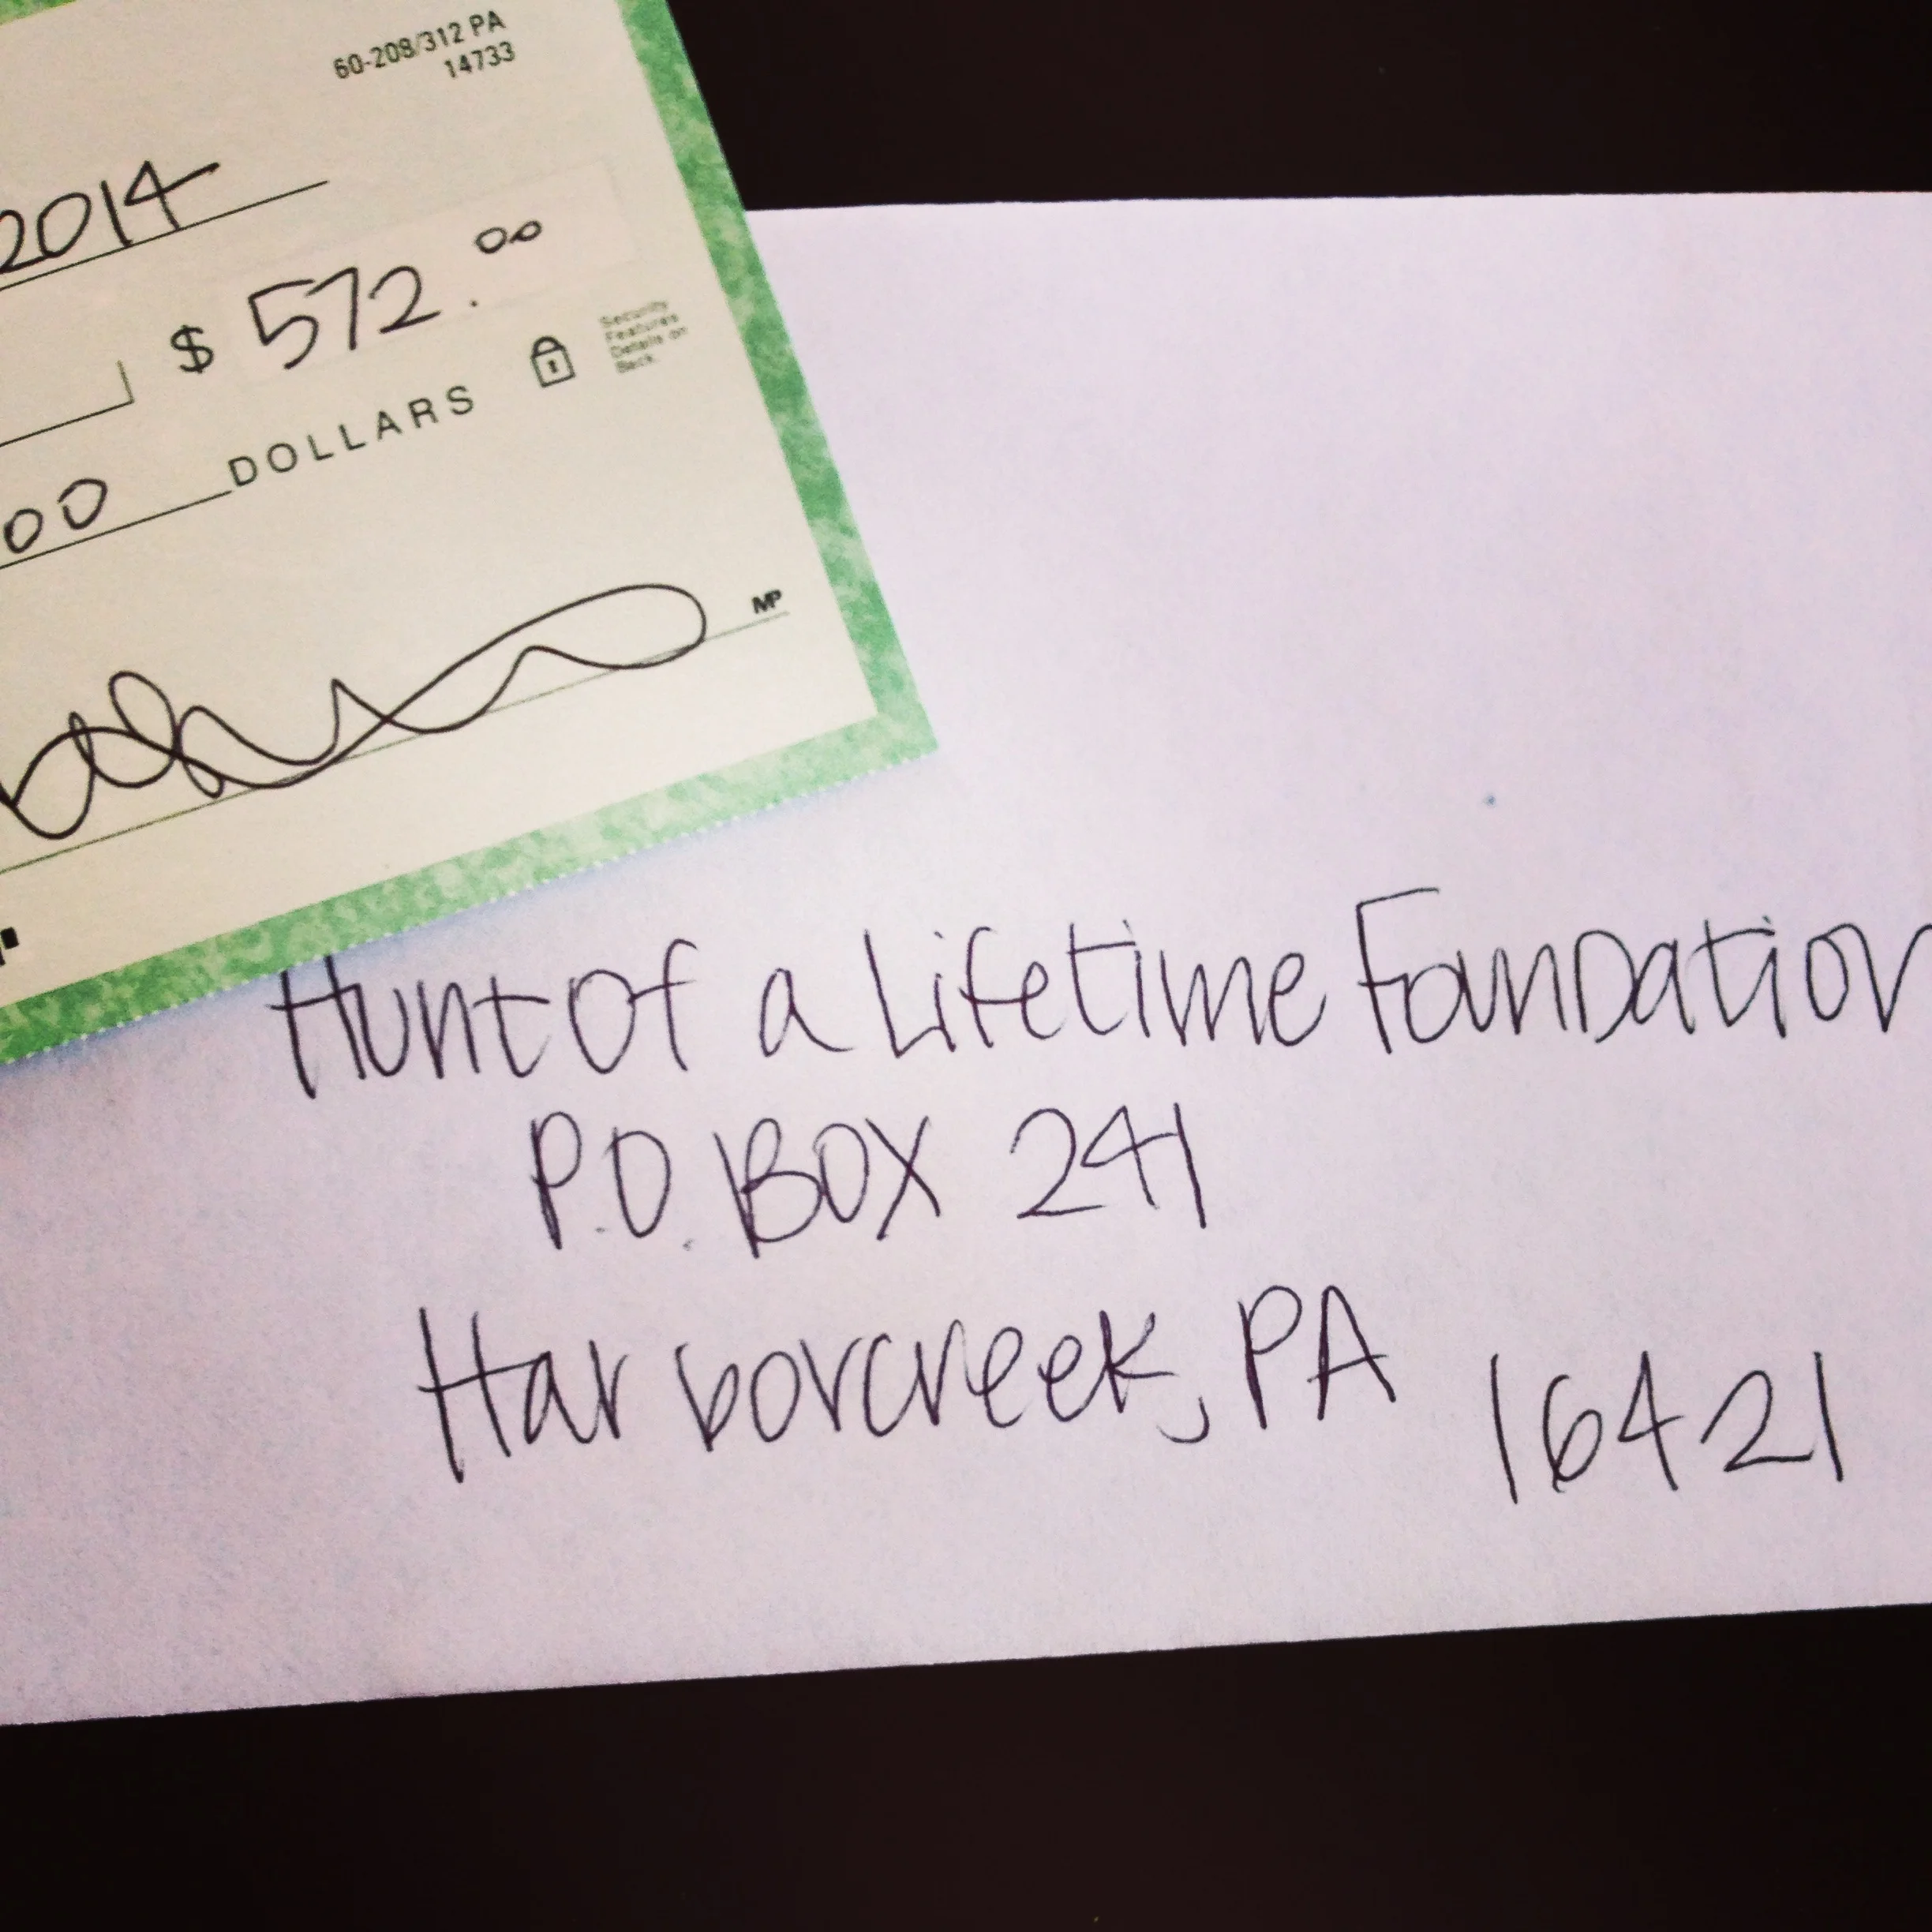 60-208/312 PA
14733
2014
$ 572.00
Security
Features
Details on
Back.
00 DOLLARS
MP
Hunt Of a Lifetime Foundation
P.O. BOX 241
Harborcreek, PA 16421